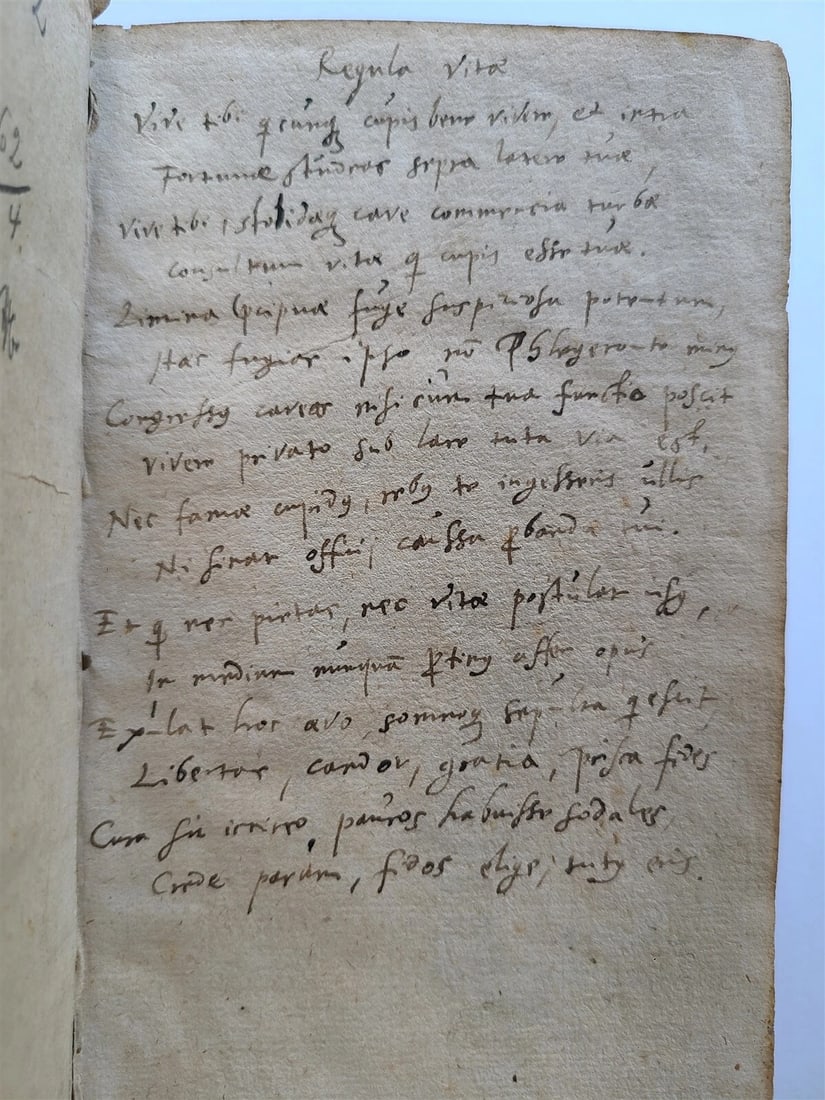 Regula vitæ
Vive tibi quicunque cupis bene vivere, et intra
Fortunæ studeas septa latere tuæ,
Vive tibi, stolidæque cave commercia turbæ
Consultum vitæ qui cupis esse tuæ.
Limina præcipuæ fuge suspiciosa potentum,
Has fugias ipso non Phlegetonte minus
Congressus caveas nisi cum tua functio poscit
Vivere privato sub lare tuta via est.
Nec famæ cupidus, rebus te ingesseris ullis
Ni sinat officii caussa probanda tui.
Et quod nec pietas, nec vitæ postulat usus,
In medium nunquam protinus affer opus
Exulat hoc ævo, somnoque sepulta quiescit
Libertas, candor, gratia, prisca fides
Cura sit paucos habuisse sodales,
Crede parum, fidos elige, tutus eris.
62
4